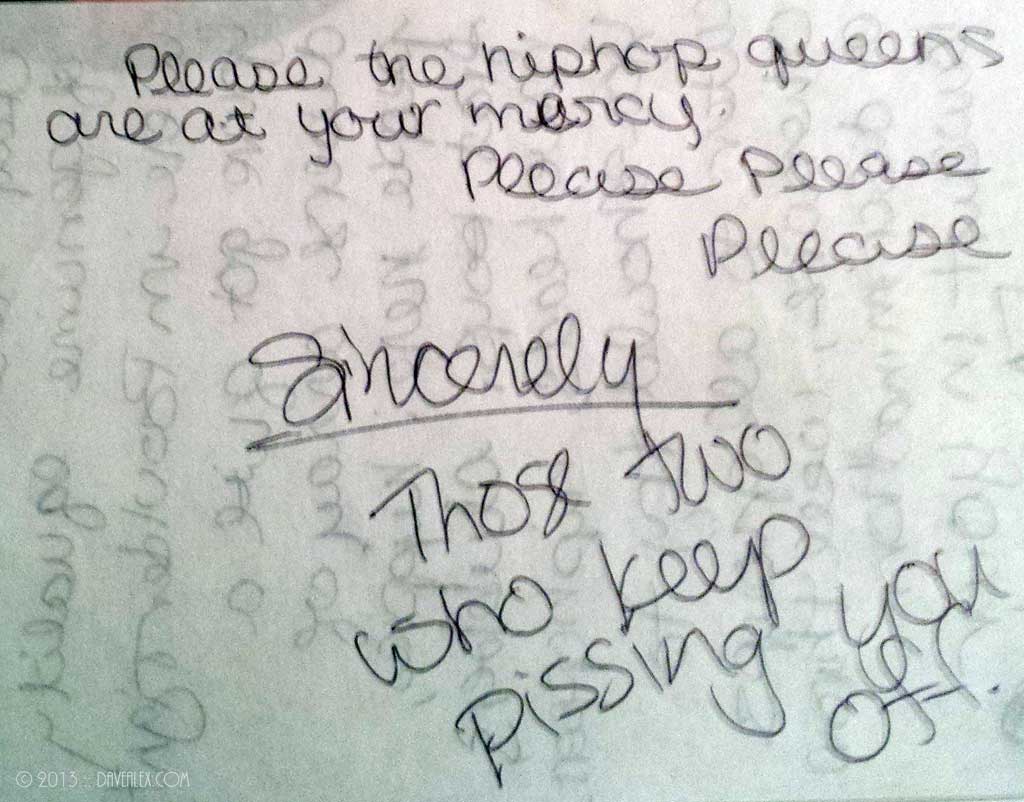 Please the hiphop queens
are at your mercy.
Please Please
Please
Sincerely
Those two
who keep
pissing you
off.
© 2013 :: DAVEALEX.COM